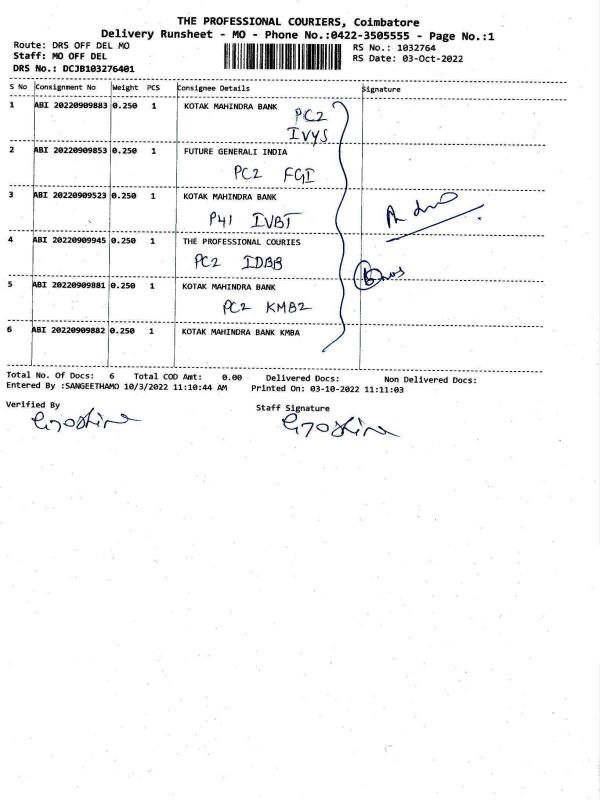 THE PROFESSIONAL COURIERS, Coimbatore
Delivery Runsheet - MO - Phone No.:0422-3505555 - Page No.:1
Route: DRS OFF DEL MO RS No.: 1032764
Staff: MO OFF DEL RS Date: 03-Oct-2022
DRS No.: DCJB103276401
S No Consignment No Weight PCS Consignee Details Signature
1 ABI 20220909883 0.250 1 KOTAK MAHINDRA BANK
PC2
IVYS
2 ABI 20220909853 0.250 1 FUTURE GENERALI INDIA
PC2 FGI
3 ABI 20220909523 0.250 1 KOTAK MAHINDRA BANK
P41 IVBT
4 ABI 20220909945 0.250 1 THE PROFESSIONAL COURIES
PC2 IDBB
5 ABI 20220909881 0.250 1 KOTAK MAHINDRA BANK
PC2 KMB2
6 ABI 20220909882 0.250 1 KOTAK MAHINDRA BANK KMBA
Total No. Of Docs: 6 Total COD Amt: 0.00 Delivered Docs: Non Delivered Docs:
Entered By :SANGEETHAMO 10/3/2022 11:10:44 AM Printed On: 03-10-2022 11:11:03
Verified By Staff Signature